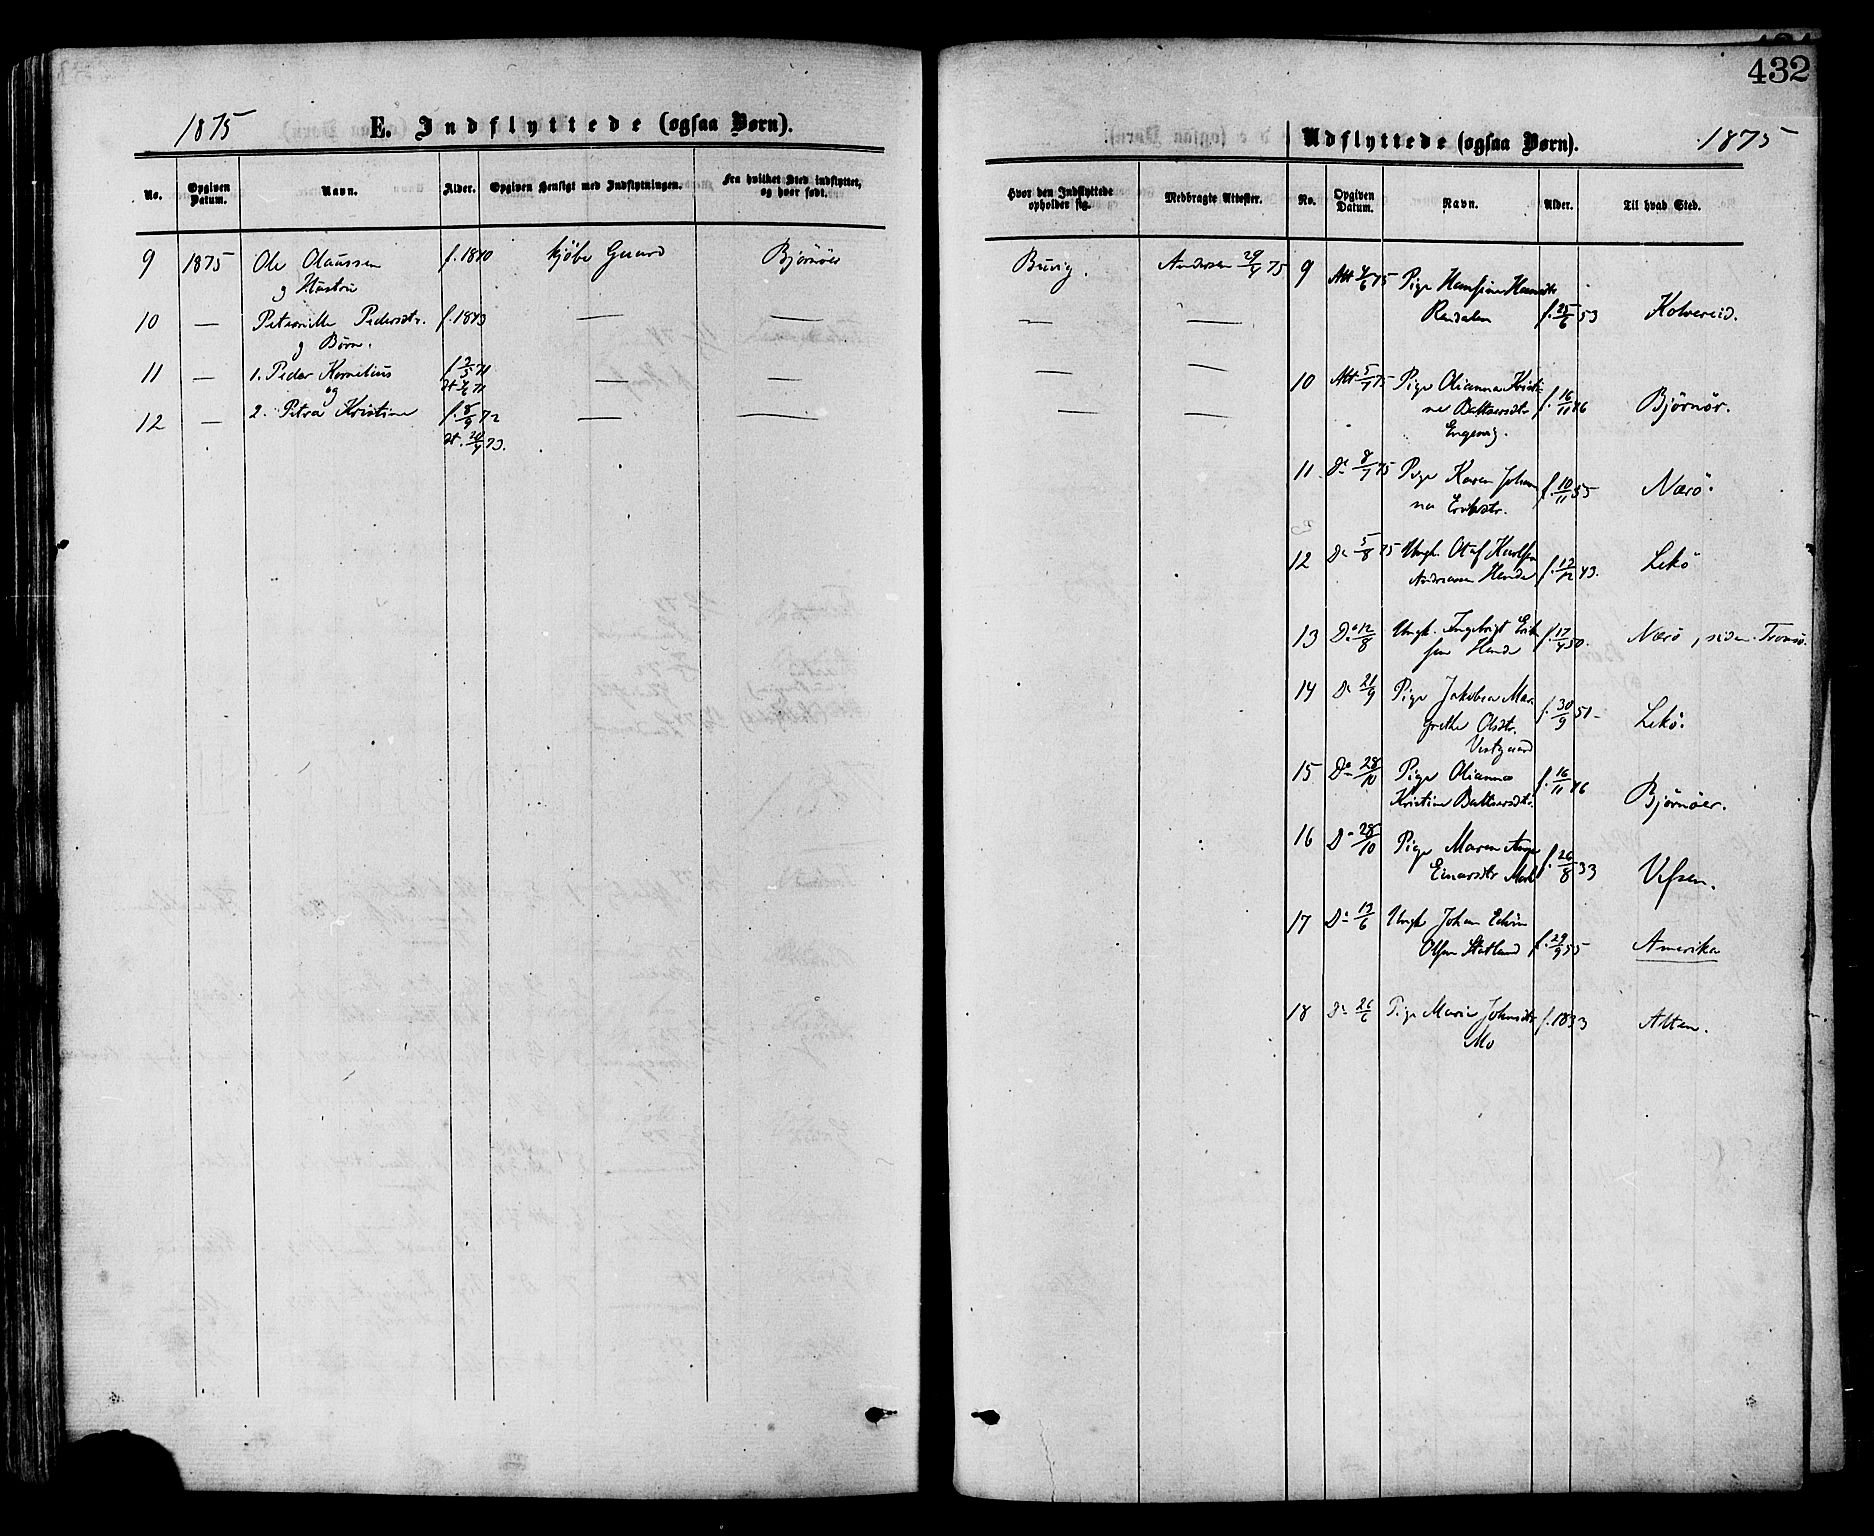 432
1875 E. Indflyttede (ogsaa Børn).
No. Opgiven Datum. Navn. Alder. Opgiven Hensigt med Indflytningen. Fra hvilket Sted indflyttet, og hvor født.
9 1875 Ole Olaussen f. 1840 kjøbe Gaard Bjørnöer
g Hustru
10 — Petronille Pedersdtr. f. 1843 — —
g Børn.
11 — 1. Peder Kornelius — —
og
12 — 2. Petra Kristine f. 8/9 72 — —
Udflyttede (ogsaa Børn). 1875
Hvor den Indflyttede opholder sig. Medbragte Attester. No. Opgiven Datum. Navn. Alder. Til hvad Sted.
Buvig. Andersen 29/4 75 9 Att 75 Pige
— — f. 25/6 53 Kolvereid.
— — 10 Att 5/7 75 Pige Olianna Kristi-
— — ne Baltsersdtr. f. 16/11 46 Bjørnör.
Engesvig.
11. Do 8/7 75 Pige Karen Johan
na f. 10/11 55 Nærö.
12 Do 5/8 75 Ungk. Olaf
f. 12/12 43. Lekö
13 Do 12/8 Ungk. Ingebrigt Erik
sen f. 17/4 50. Nærö, siden Tromsö.
14 Do 21/9 Pige Jakobea Mar-
grethe Olsdtr. f. 30/9 51 Lekö.
Vestgaard
15 Do 28/10 Pige Olianna f. 16/11 46
Kristine Baltsersdtr. Bjørnöer.
16 Do 28/10 Pige Maren
Einarsdtr f. 26/8 33 Vefsen.
17 Do 13/6 Ungk Johan Edvin
Olsen Statland f. 29/9 55 Amerika
18 Do 26/6 Pige Marie Johnsdtr f. 1833 Alten.
Mo